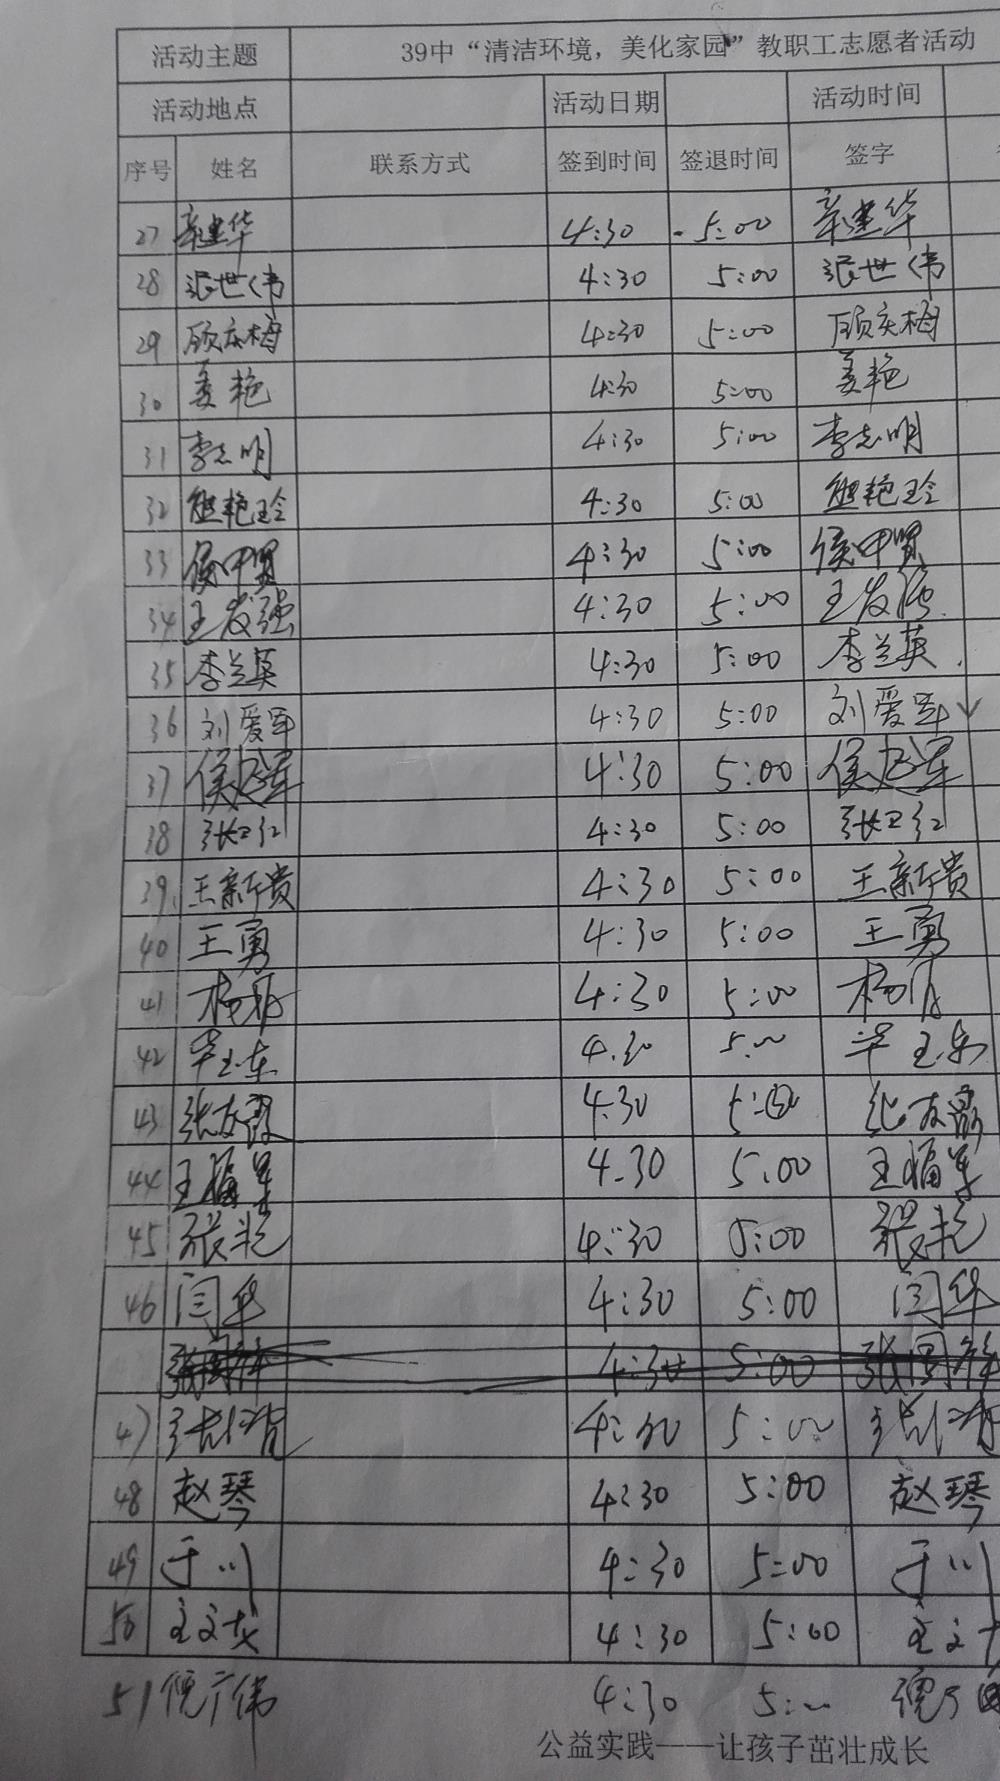 活动主题 39中“清洁环境，美化家园”教职工志愿者活动
活动地点 活动日期 活动时间
序号 姓名 联系方式 签到时间 签退时间 签字
27 辛建华 4:30 5:00 辛建华
28 张世伟 4:30 5:00 张世伟
29 顾庆梅 4:30 5:00 顾庆梅
30 姜艳 4:30 5:00 姜艳
31 李志明 4:30 5:00 李志明
32 熊艳玲 4:30 5:00 熊艳玲
33 侯中贤 4:30 5:00 侯中贤
34 王发强 4:30 5:00 王发强
35 李兰英 4:30 5:00 李兰英
36 刘爱军 4:30 5:00 刘爱军
37 4:30 5:00
38 张卫红 4:30 5:00 张卫红
39 王新贵 4:30 5:00 王新贵
40 王勇 4:30 5:00 王勇
41 4:30 5:00
42 4.30 5.00
43 4.30 5:00
44 王福军 4.30 5:00 王福军
45 张艳 4:30 5:00 张艳
46 闫华 4:30 5:00 闫华
4:30 5:00
47 4:30 5:00
48 赵琴 4:30 5:00 赵琴
49 于川 4:30 5:00 于川
50 4:30 5:00
51 倪广伟 4:30 5:00
公益实践——让孩子茁壮成长